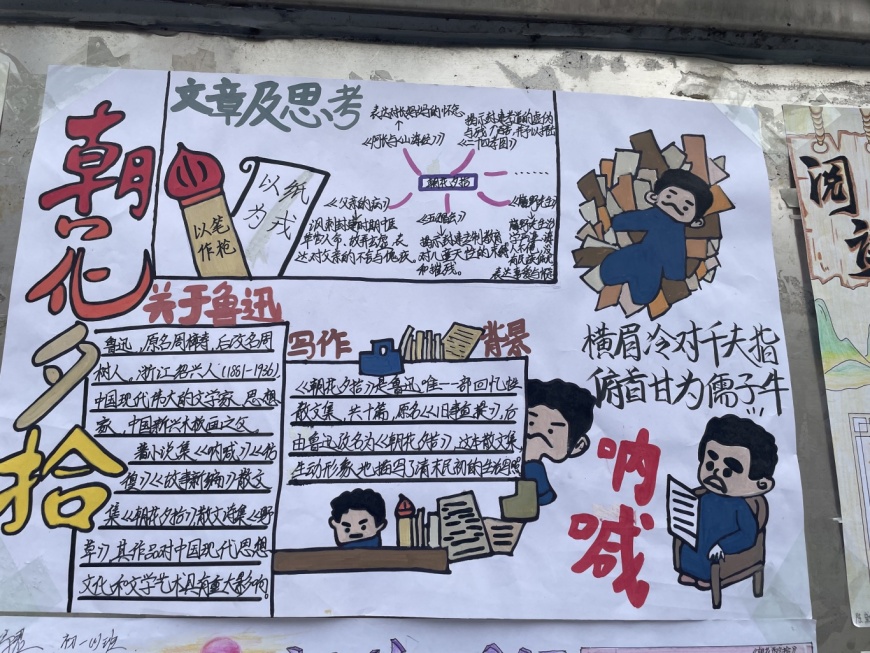 朝花夕拾
文章及思考
以笔
作枪
以纸
为戎
表达对长妈妈的怀念
《阿长与山海经》
揭示封建孝道的虚伪
《二十四孝图》
朝花夕拾
......
《父亲的病》
讽刺封建时期中医
草菅人命，故弄玄虚，表
达对父亲的不舍与愧疚。
《五猖会》
揭示封建专制教育
对儿童天性的束缚
和摧残。
《藤野先生》
关于鲁迅
鲁迅，原名周樟寿，后改名周
树人，浙江绍兴人（1881-1936）
中国现代伟大的文学家、思想
家，中国新兴木板画之父。
著小说集《呐喊》《彷
徨》《故事新编》散文
集《朝花夕拾》散文诗集《野
草》，其作品对中国现代思想
文化和文学艺术具有重大影响。
写作 背景
《朝花夕拾》是鲁迅唯一一部回忆性
散文集，共十篇，原名《旧事重提》，后
由鲁迅改名为《朝花夕拾》，这本散文集
生动形象地描写了清末民初的生活图景
横眉冷对千夫指
俯首甘为儒子牛
呐
喊
阅
初一(1)班